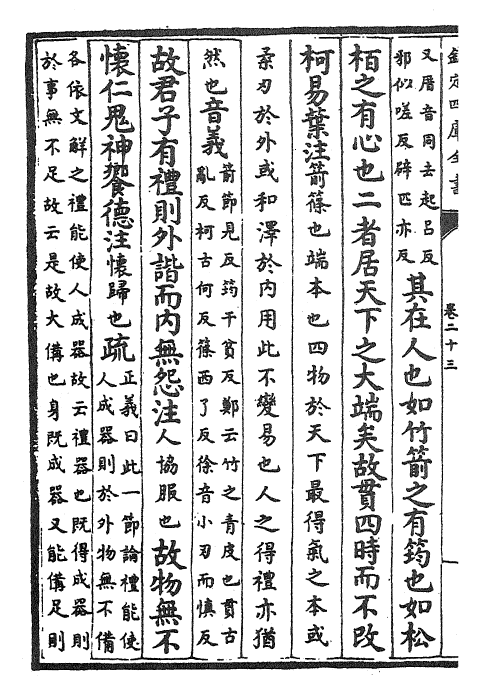 欽定四庫全書
卷二十三
又厝音同去起呂反
邪似嗟反辟匹亦反
其在人也如竹箭之有筠也如松
栢之有心也二者居天下之大端矣故貫四時而不改
柯易葉注箭篠也端本也四物於天下最得氣之本或
柔刃於外或和澤於內用此不變易也人之得禮亦猶
然也音義
箭節見反筠于貧反鄭云竹之青皮也貫古
亂反柯古何反篠西了反徐音小刃而慎反
故君子有禮則外諧而內無怨注人協服也故物無不
懷仁鬼神饗德注懷歸也疏
正義曰此一節論禮能使
人成器則於外物無不備
各依文解之禮能使人成器故云禮器也既得成器則
於事無不足故云是故大備也身既成器又能備足則